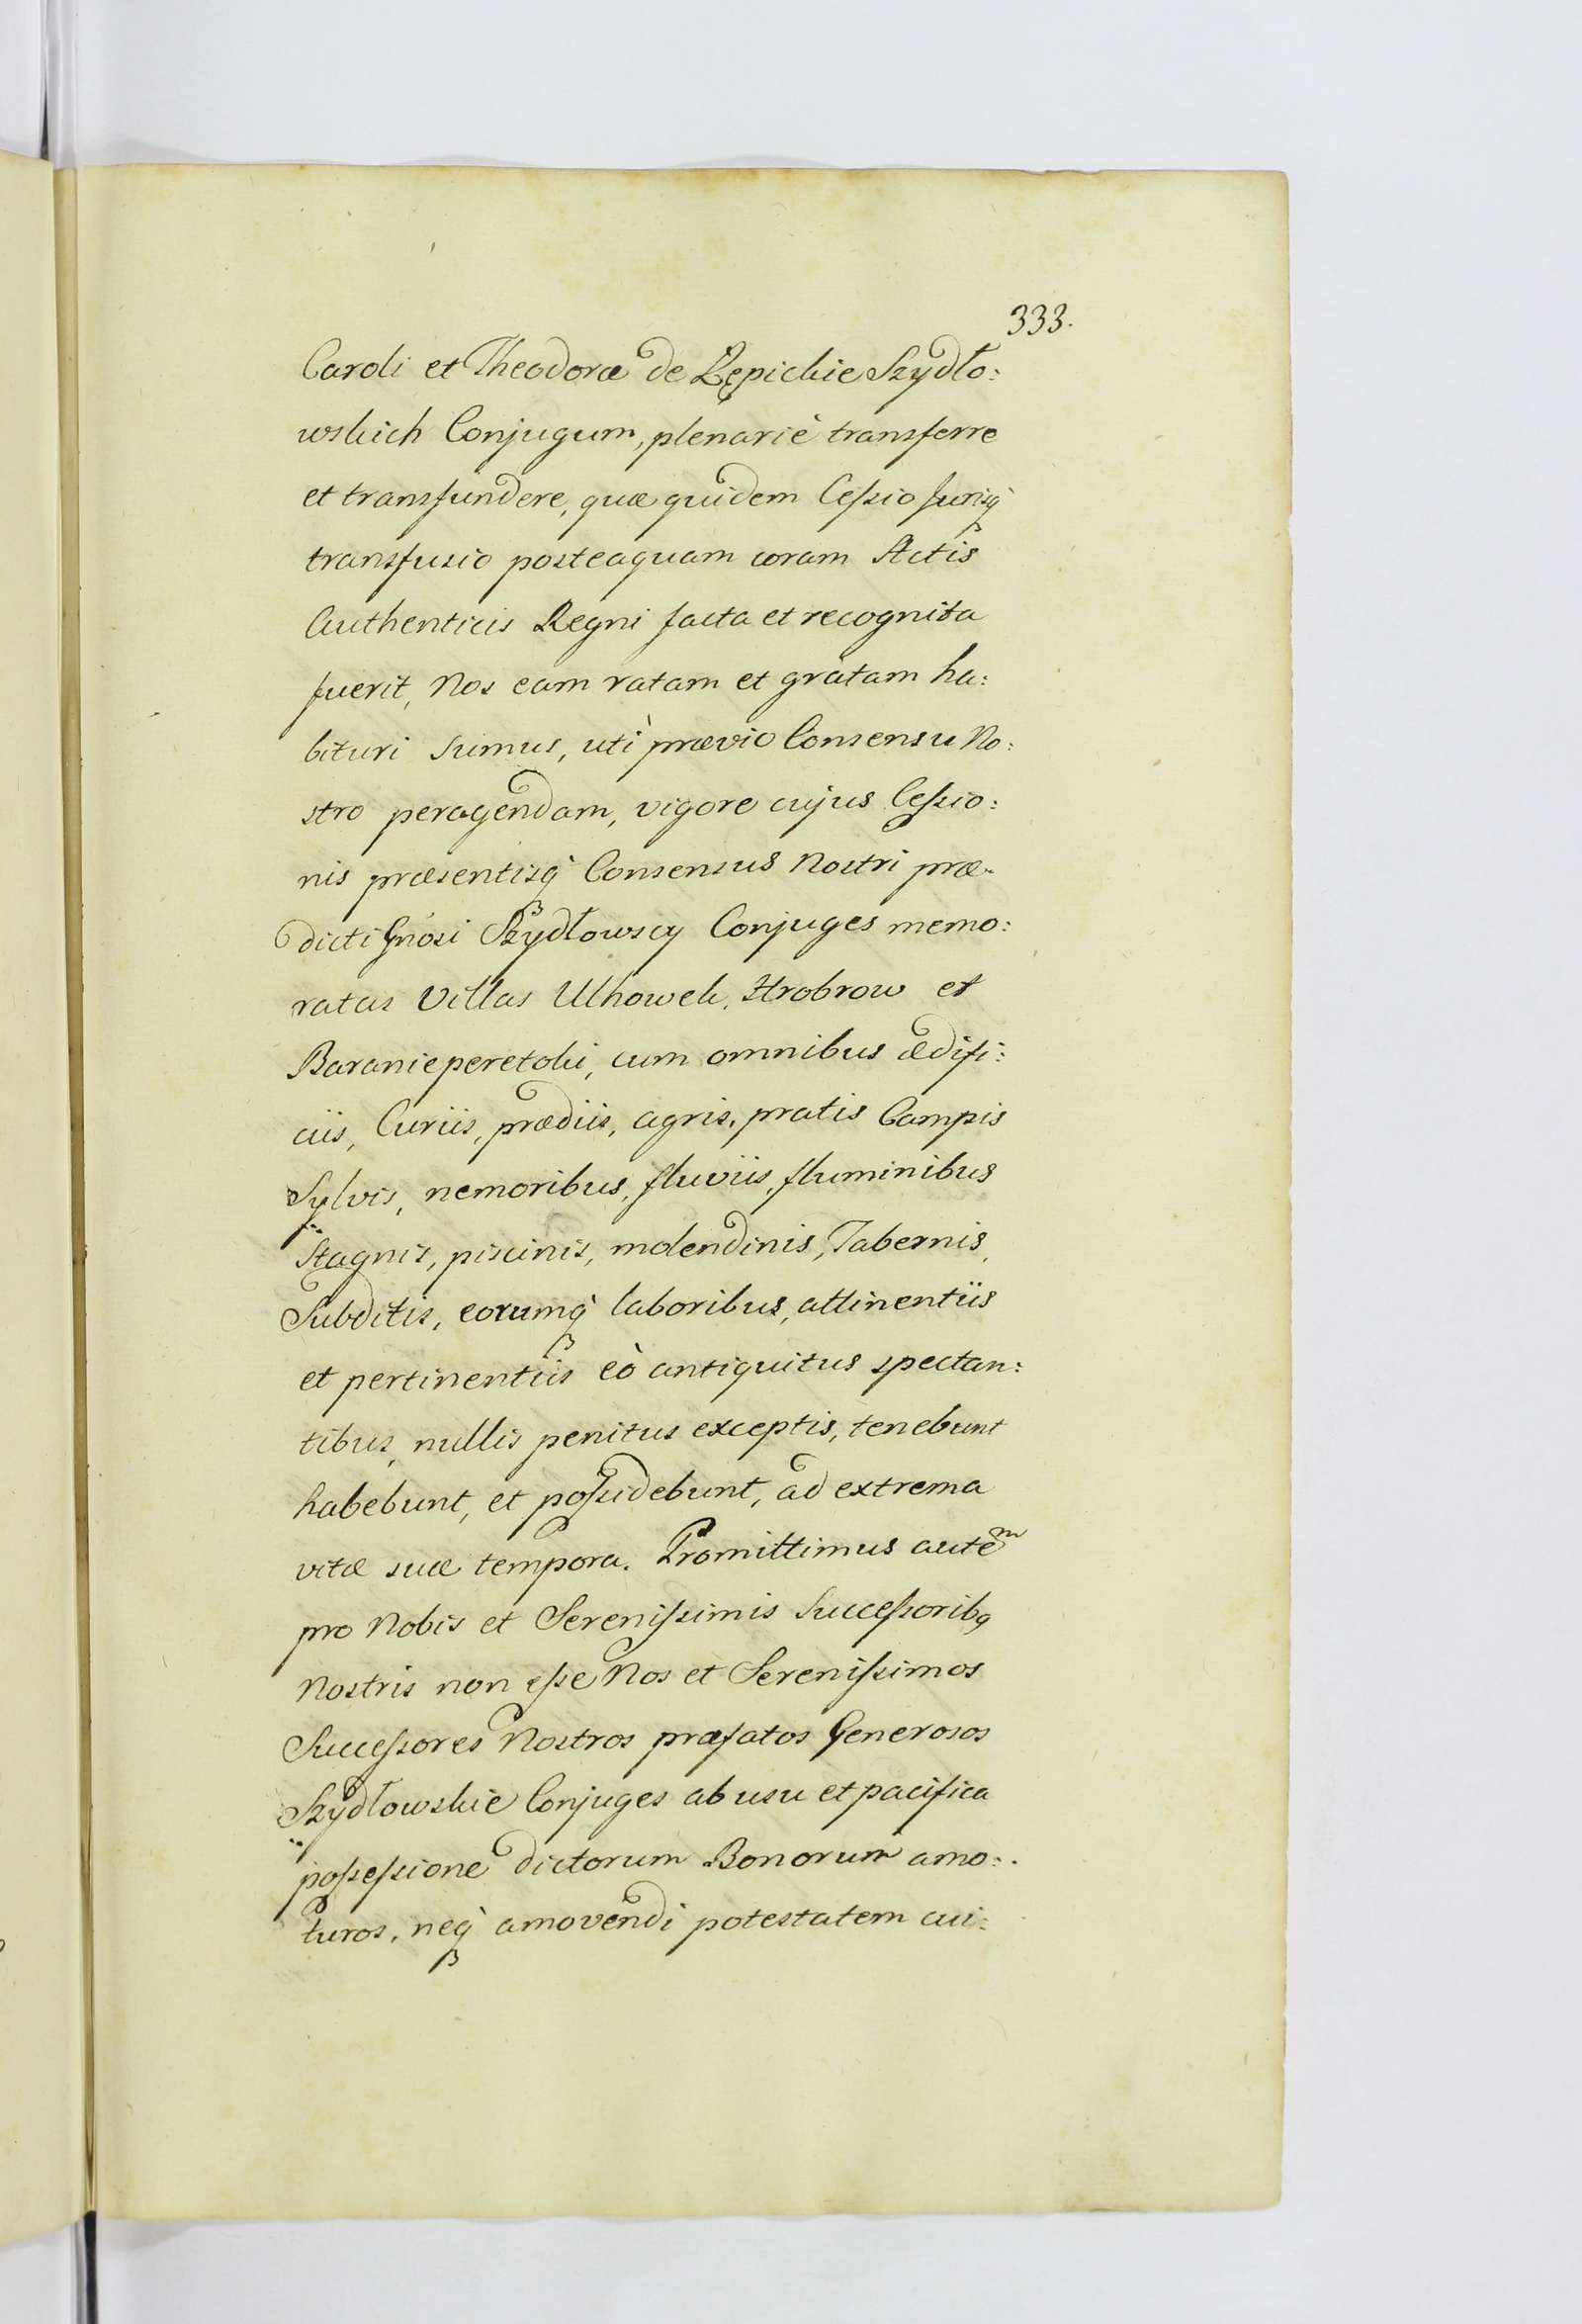 333.
Caroli et Theodoræ de Rępickie Szydło:
wskich Conjugum, plenariè transferre
et transfundere, quæ quidem Cessio Jurisq̀
transfusio posteaquam coram Actis
Authenticis Regni facta et recognita
fuerit, Nos eam ratam et gratam ha:
bituri sumus, utì prævio Consensu No:
stro peragendam, vigore cujus Cessio:
nis præsentisq̀ Consensus Nostri præ-
dicti Gnósi Szydłowscy Conjuges memo:
ratas Villas Uhowek, Hrobrow et
Baranieperetoki, cum omnibus ædifi:
ciis, Curiis, prædiis, agris, pratis Campis
Sylvis, nemoribus, fluviis, fluminibus
Stagnis, piscinis, molendinis, Tabernis,
Subditis, eorumq̀ laboribus, attinentiis
et pertinentiis eò antiquitus spectan:
tibus, nullis penitus exceptis, tenebunt
habebunt, et possidebunt, ad extrema
vitæ suæ tempora. Promittimus autem
pro Nobis et Serenissimis Successoribq
Nostris non esse Nos et Serenissimos
Successores Nostros præfatos Generosos
Szydłowskie Conjuges ab usu et pacifica
possessione dictorum Bonorum amo:
turos, neq̀ amovendi potestatem cui: